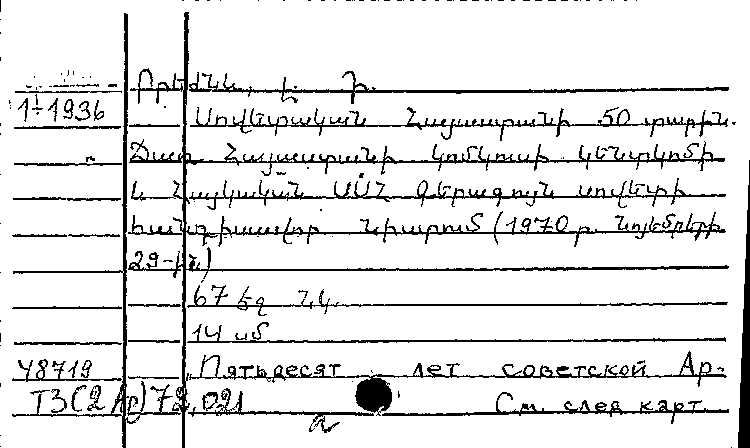 Բրեժնև, Լ. Ի.
1÷1936 Սովետական Հայաստանի 50 տարին.
Ճառ Հայաստանի կոմկուսի կենտկոմի
և Հայկական ՍՍՀ Գերագույն սովետի
հանդիսավոր նիստում (1970 թ. նոյեմբերի
29-ին)
67 էջ նկ.
14 սմ
48719 Пятьдесят лет советской Ар-
Т3(2Ар)72,021 См. след карт.
а